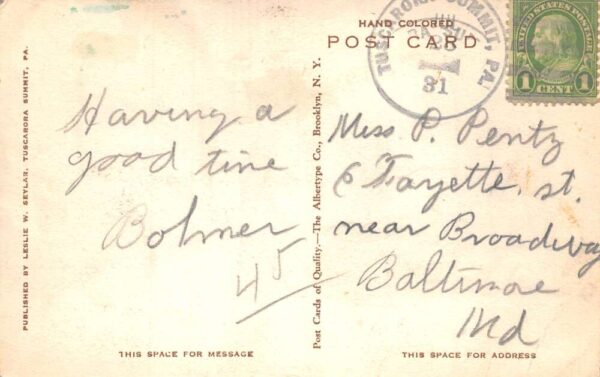 HAND COLORED
POST CARD
TUSCARORA SUMMIT, PA.
31
UNITED STATES POSTAGE
1 CENT 1
Having a
good time
Bolmer
45
Miss P. Pentz
E Fayette. st.
near Broadway
Baltimore
Md
PUBLISHED BY LESLIE W. SEYLAR, TUSCARORA SUMMIT, PA.
Post Cards of Quality.—The Albertype Co., Brooklyn, N. Y.
THIS SPACE FOR MESSAGE
THIS SPACE FOR ADDRESS